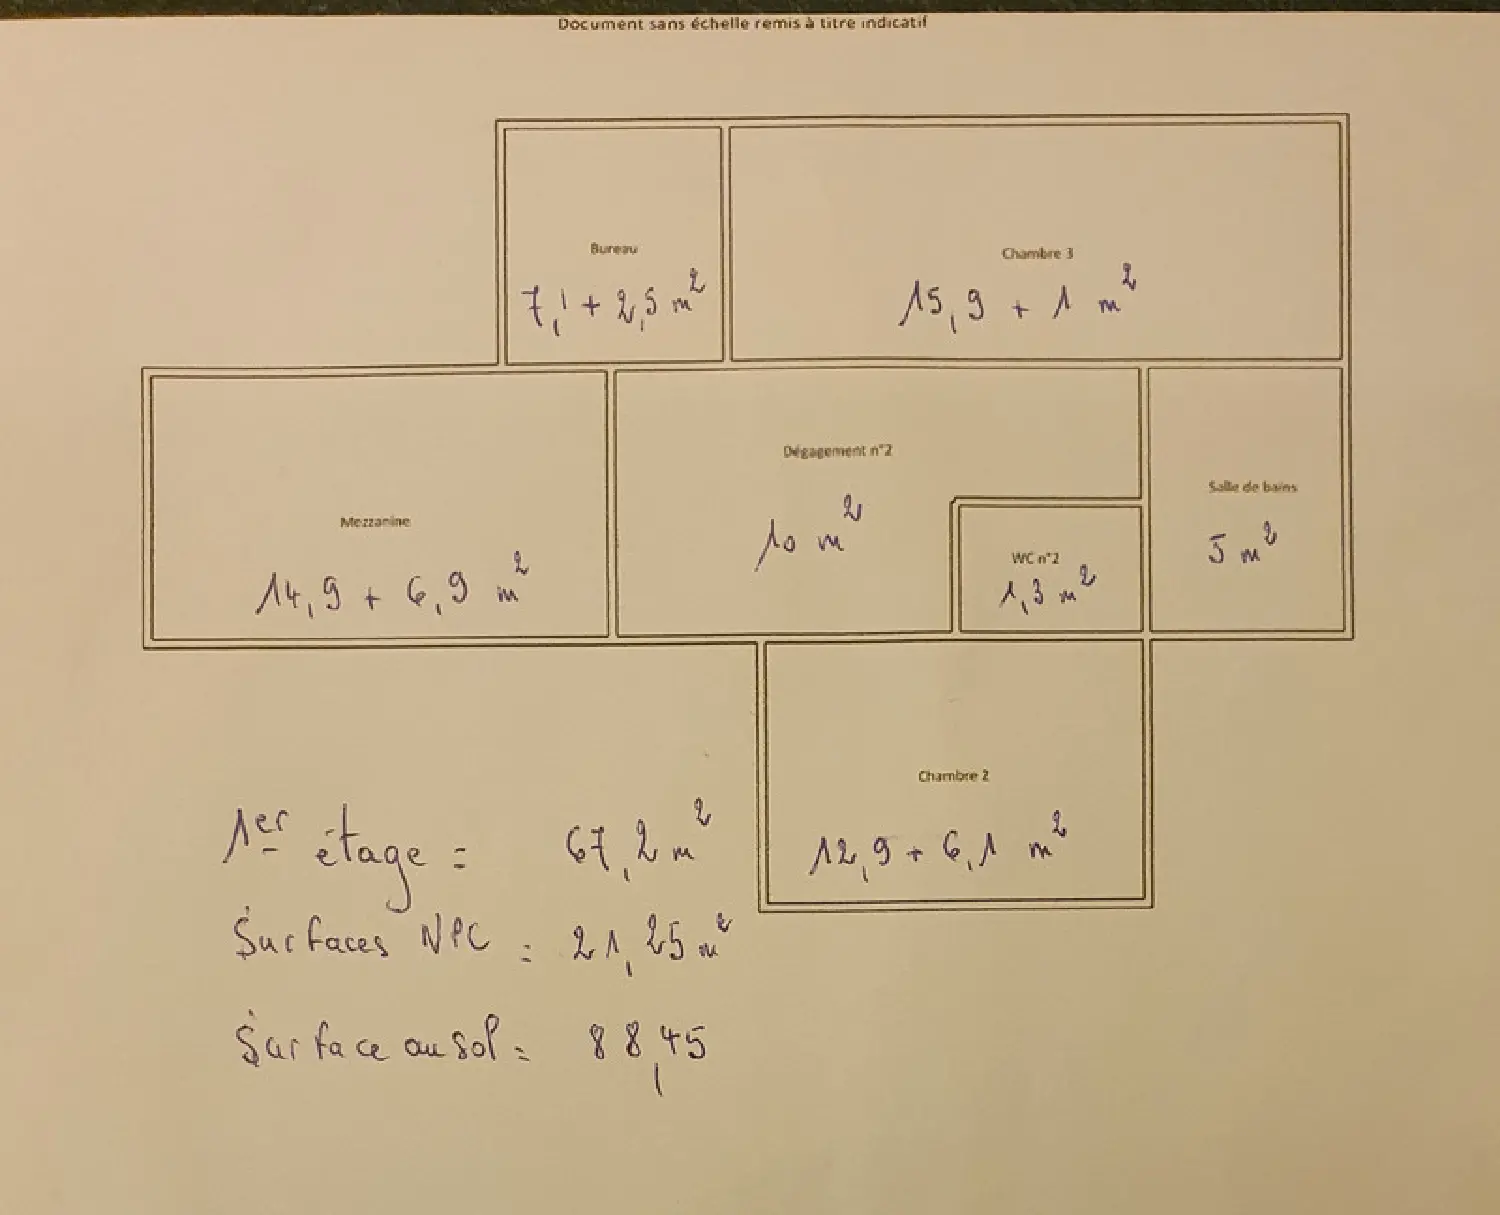 Document sans échelle remis à titre indicatif
Bureau
7,1 + 2,5 m²
Chambre 3
15,9 + 1 m²
Mezzanine
14,9 + 6,9 m²
Dégagement n°2
10 m²
WC n°2
1,3 m²
Salle de bains
5 m²
Chambre 2
12,9 + 6,1 m²
1er étage = 67,2 m²
Surfaces NPC = 21,25 m²
Surface au sol = 88,45